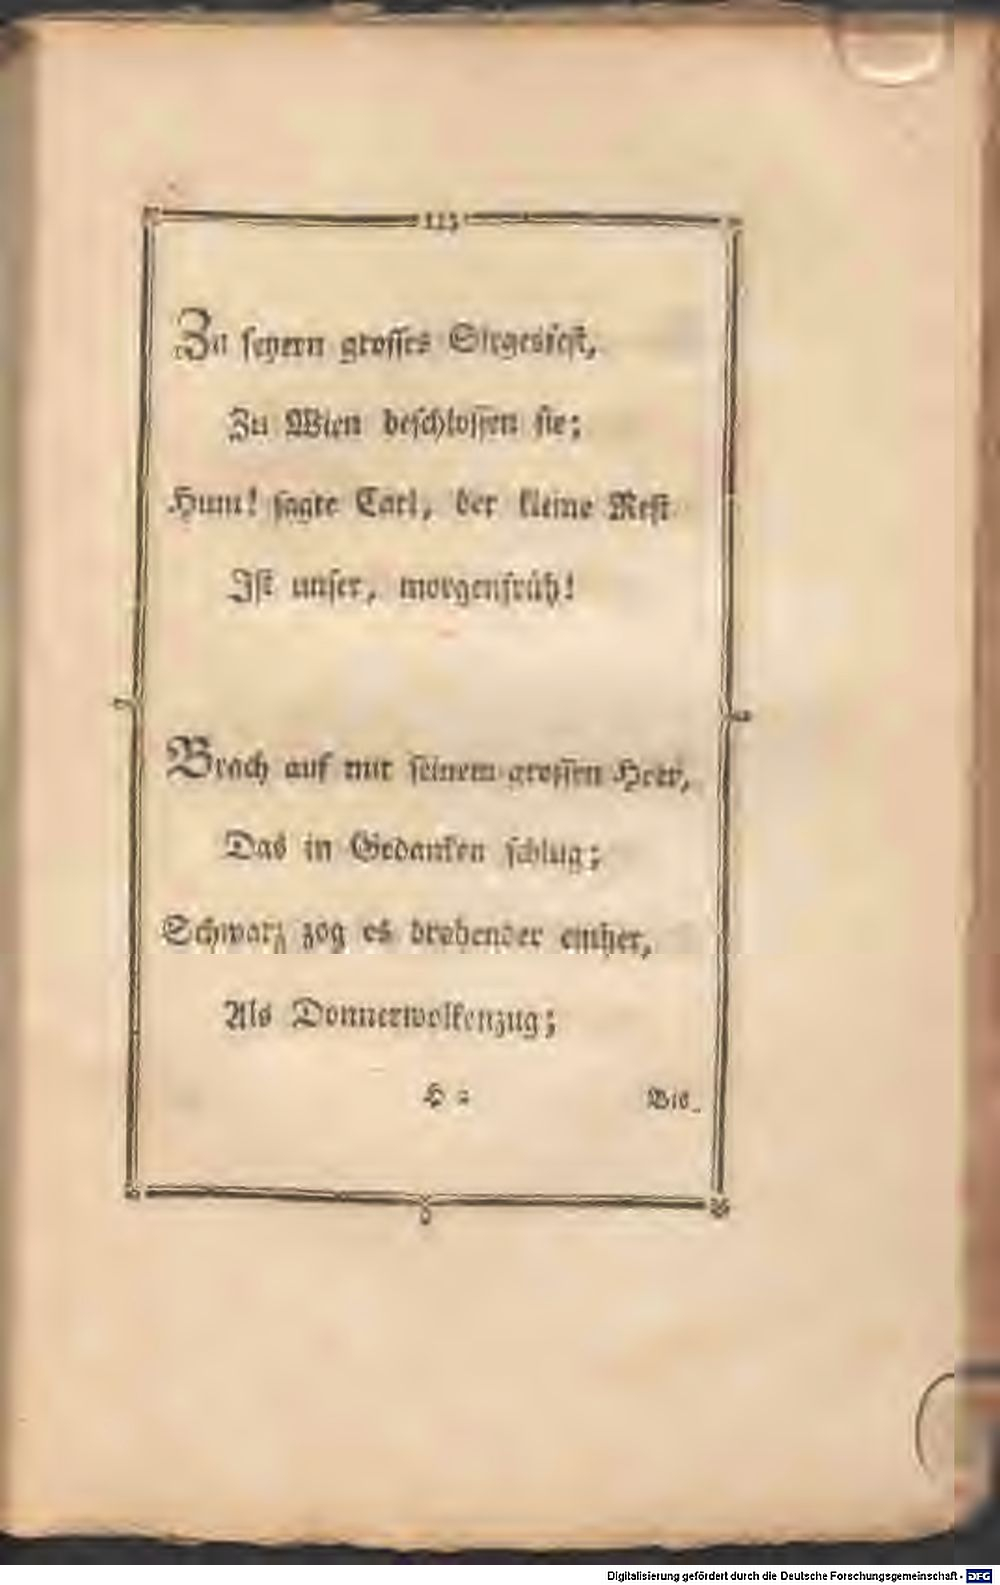 115
Zu feyern grosses Siegesfest,
Zu Wien beschlossen sie;
Hum! sagte Carl, der kleine Rest
Ist unser, morgenfrüh!
Brach auf mit seinem grossen Heer,
Das in Gedanken schlug;
Schwarz zog es drohender einher,
Als Donnerwolkenzug;
H 2
Bis
Digitalisierung gefördert durch die Deutsche Forschungsgemeinschaft - DFG